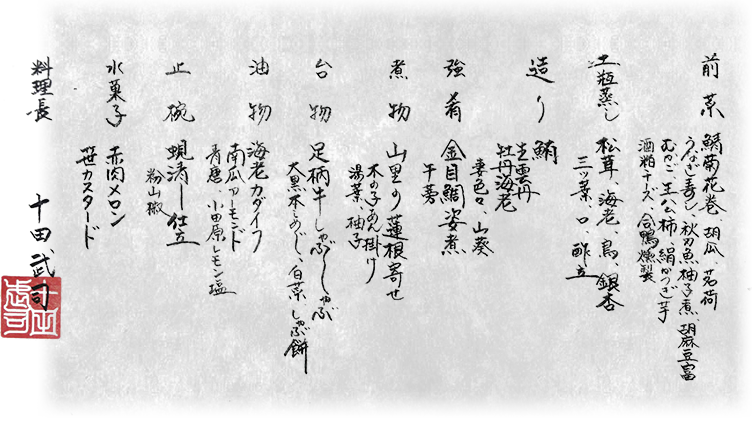 前菜 鯖菊花巻、胡瓜、茗荷
うなぎ寿し、秋刀魚柚子煮、胡麻豆富
むかご、玉公柿、絹かつぎ芋
酒粕チーズ、合鴨燻製
土瓶蒸し 松茸、海老、鳥、銀杏
三ッ葉、口、酢立
造り 鮪
生雲丹
牡丹海老
妻色々、山葵
強肴 金目鯛姿煮
牛蒡
煮物 山里の蓮根寄せ
木の子あん掛け
湯葉、柚子
台物 足柄牛しゃぶしゃぶ
大黒本しめじ、白菜、しゃぶ餅
油物 海老カダイフ
南瓜アーモンド
青唐、小田原レモン塩
止椀 蜆清し仕立
粉山椒
水菓子 赤肉メロン
笹カスタード
料理長 十田武司